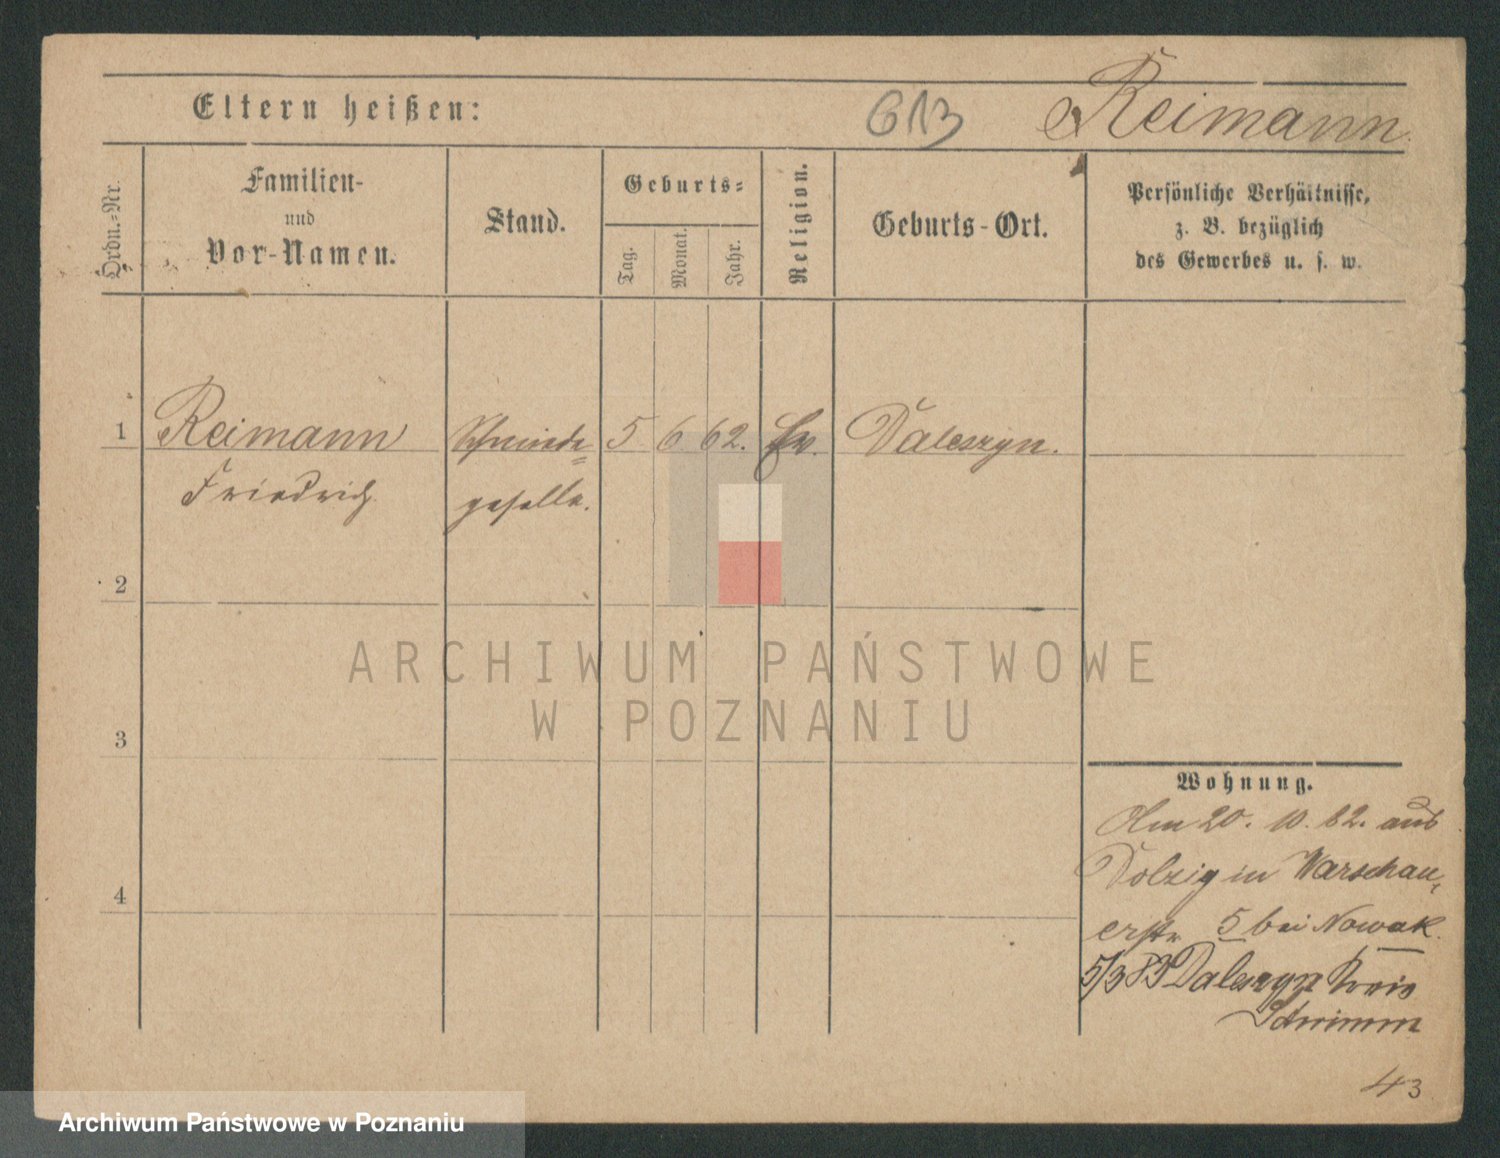 Eltern heißen: 613 Reimann.
Ordn.=Nr.
Familien-
und
Vor-Namen.
Stand.
Geburts=
Tag.
Monat.
Jahr.
Religion.
Geburts-Ort.
Persönliche Verhältnisse,
z. B. bezüglich
des Gewerbes u. s. w.
1 Reimann Schmiede= 5 6 62. Ev. Daleszyn.
Friedrich geselle.
2
3
4
Wohnung.
Am 20. 10. 82. aus
Dolzig in Warschau,
erstr 5 bei Nowak.
5/3 83 Daleszyn Kreis
Schrimm
43
ARCHIWUM PAŃSTWOWE
W POZNANIU
Archiwum Państwowe w Poznaniu